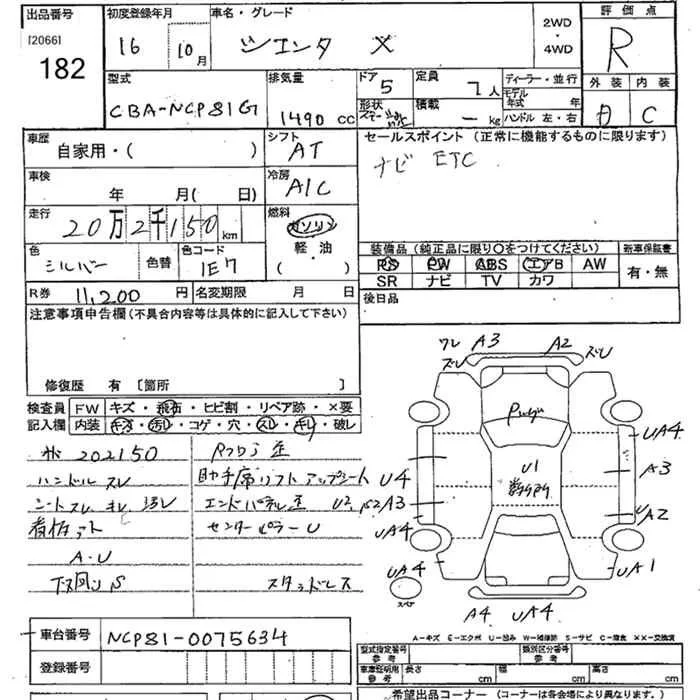 出品番号 初度登録年月 車名・グレード 2WD・4WD 評価点
[2066] 182 16年 10月 シエンタ X R
型式 排気量 ドア 5 定員 7人 ディーラー・並行 外装 内装
CBA-NCP81G 1490cc 形状 積載 ー kg モデル年式 年 ハンドル 左・右 C
車歴 シフト セールスポイント (正常に機能するものに限ります)
自家用・( ) AT ナビ ETC
車検 冷房
年 月( 日) A/C
走行 燃料
20万2千150km ガソリン
色 色替 色コード 軽・油
シルバー 1E7 ( )
装備品(純正品に限り○をつけてください) 新車保証書
PS PW ABS エアB AW 有・無
SR ナビ TV カワ
R券 11,200円 名変期限 月 日 後日品
注意事項申告欄(不具合内容等は具体的に記入して下さい)
修復歴 有 [箇所 ]
検査員 FW キズ・飛石・ヒビ割・リペア跡・×要
記入欄 内装 キズ・汚レ・コゲ・穴・スレ・キレ・破レ
202150 Rフロア歪
ハンドルスレ 助手席リフトアップシート
シートスレ エンドパネル歪
センターピラーU
A・U
下回りS スタッドレス
ワレ A3 A2 ズレ
ズレ
U1
UA4
U4 A3
U2 A3 A2
UA4
UA4 UA1
スペア
A4 UA4
車台番号 NCP81-0075634
登録番号
A-キズ E-エクボ U-凹み W-補修跡 S-サビ C-腐食 XX-交換済
型式指定番号 参考 類別区分番号 参考
車庫証明用 参考 長さ cm 幅 cm 高さ cm
希望出品コーナー(コーナーは各会場により異なります。)